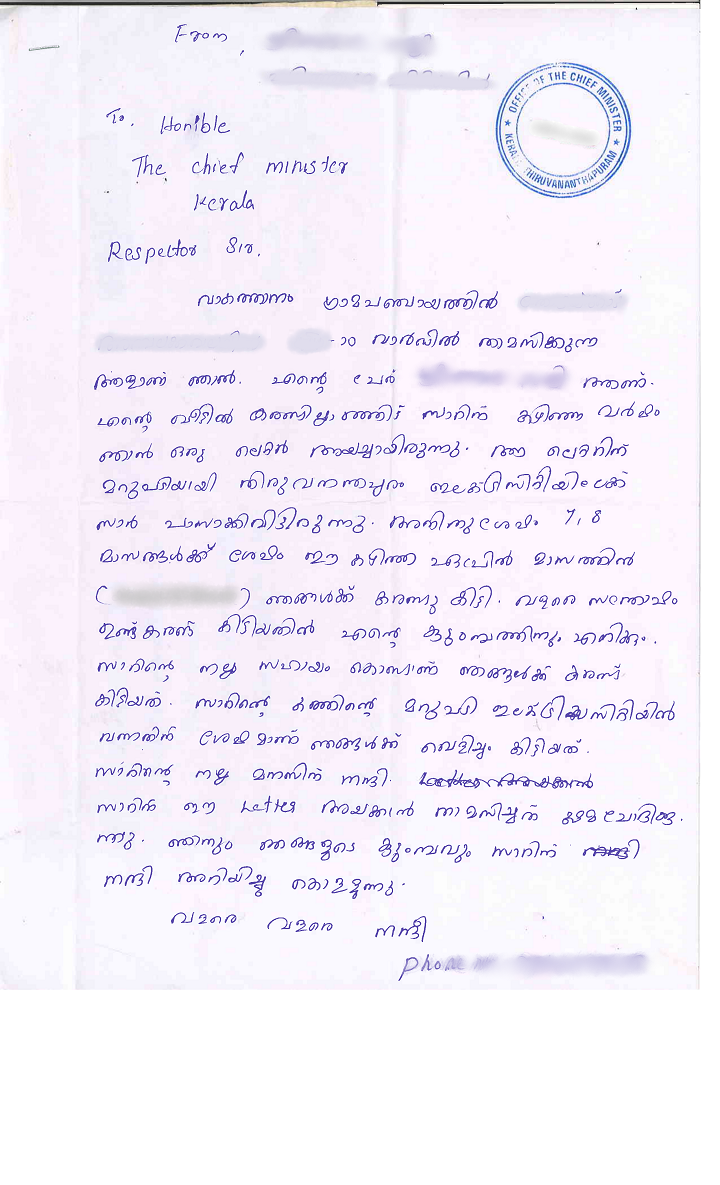 From,
OFFICE OF THE CHIEF MINISTER
KERALA THIRUVANANTHAPURAM
To. Honible
The chief minister
Kerala
Respector Sir.
വാകത്താനം ഗ്രാമപഞ്ചായത്തിൽ
-ാം വാർഡിൽ താമസിക്കുന്ന
ആളാണ് ഞാൻ. എന്റെ പേര് ആണ്.
എന്റെ വീട്ടിൽ കരണ്ടില്ലാഞ്ഞിട് സാറിന് കഴിഞ്ഞ വർഷം
ഞാൻ ഒരു ലെറ്റർ അയച്ചായിരുന്നു. ആ ലെറ്ററിന്
മറുപടിയായി തിരുവനന്തപുരം ഇലക്ട്രിസിറ്റിയിലേക്ക്
സാർ പാസാക്കിവിട്ടിരുന്നു. അതിനുശേഷം 7, 8
മാസങ്ങൾക്ക് ശേഷം ഈ കഴിഞ്ഞ ഏപ്രിൽ മാസത്തിൽ
( ) ഞങ്ങൾക്ക് കരണ്ടു കിട്ടി. വളരെ സന്തോഷം
ഉണ്ട് കരണ്ട് കിട്ടിയതിൽ എന്റെ കുടുംമ്പത്തിനും, എനിക്കും.
സാറിന്റെ നല്ല സഹായം കൊണ്ടാണ് ഞങ്ങൾക്ക് കരണ്ട്
കിട്ടിയത്. സാറിന്റെ കത്തിന്റെ മറുപടി ഇലക്ട്രിക്സിറ്റിയിൽ
വന്നതിൻ ശേഷമാണ് ഞങ്ങൾക്ക് വെളിച്ചം കിട്ടിയത്.
സാറിന്റെ നല്ല മനസിന് നന്ദി.
സാറിന് ഈ Letter അയക്കാൻ താമസിച്ചതി ക്ഷമ ചോദിക്കു-
ന്നു. ഞാനും ഞങ്ങളുടെ കുടുംമ്പവും സാറിന്
നന്ദി അറിയിച്ചു കൊള്ളുന്നു.
വളരെ വളരെ നന്ദി
Phone no